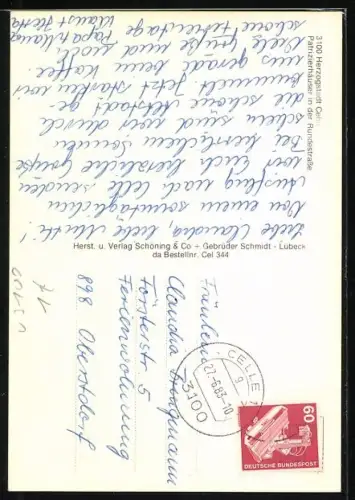 3100 Herzogstadt Celle
Patrizierhäuser in der Rundestraße
Liebe Claudia, liebe Mutti!
Von einem sonntäglichen
Ausflug nach Celle senden
wir Euch herzliche Grüße
Bei herrlichem Sonnen-
schein sind wir durch
die schöne Altstadt ge-
bummelt. Jetzt stärken wir
uns gerade beim Kaffee.
Viele Grüße und noch
schöne Ferientage
Papa
Herst. u. Verlag Schöning & Co + Gebrüder Schmidt - Lübeck
da Bestellnr. Cel 344
Fräulein
Claudia
Försterstr. 5
Ferienwohnung
898 Oberstdorf
CELLE 1
27.-6.83-10
3100
60
DEUTSCHE BUNDESPOST